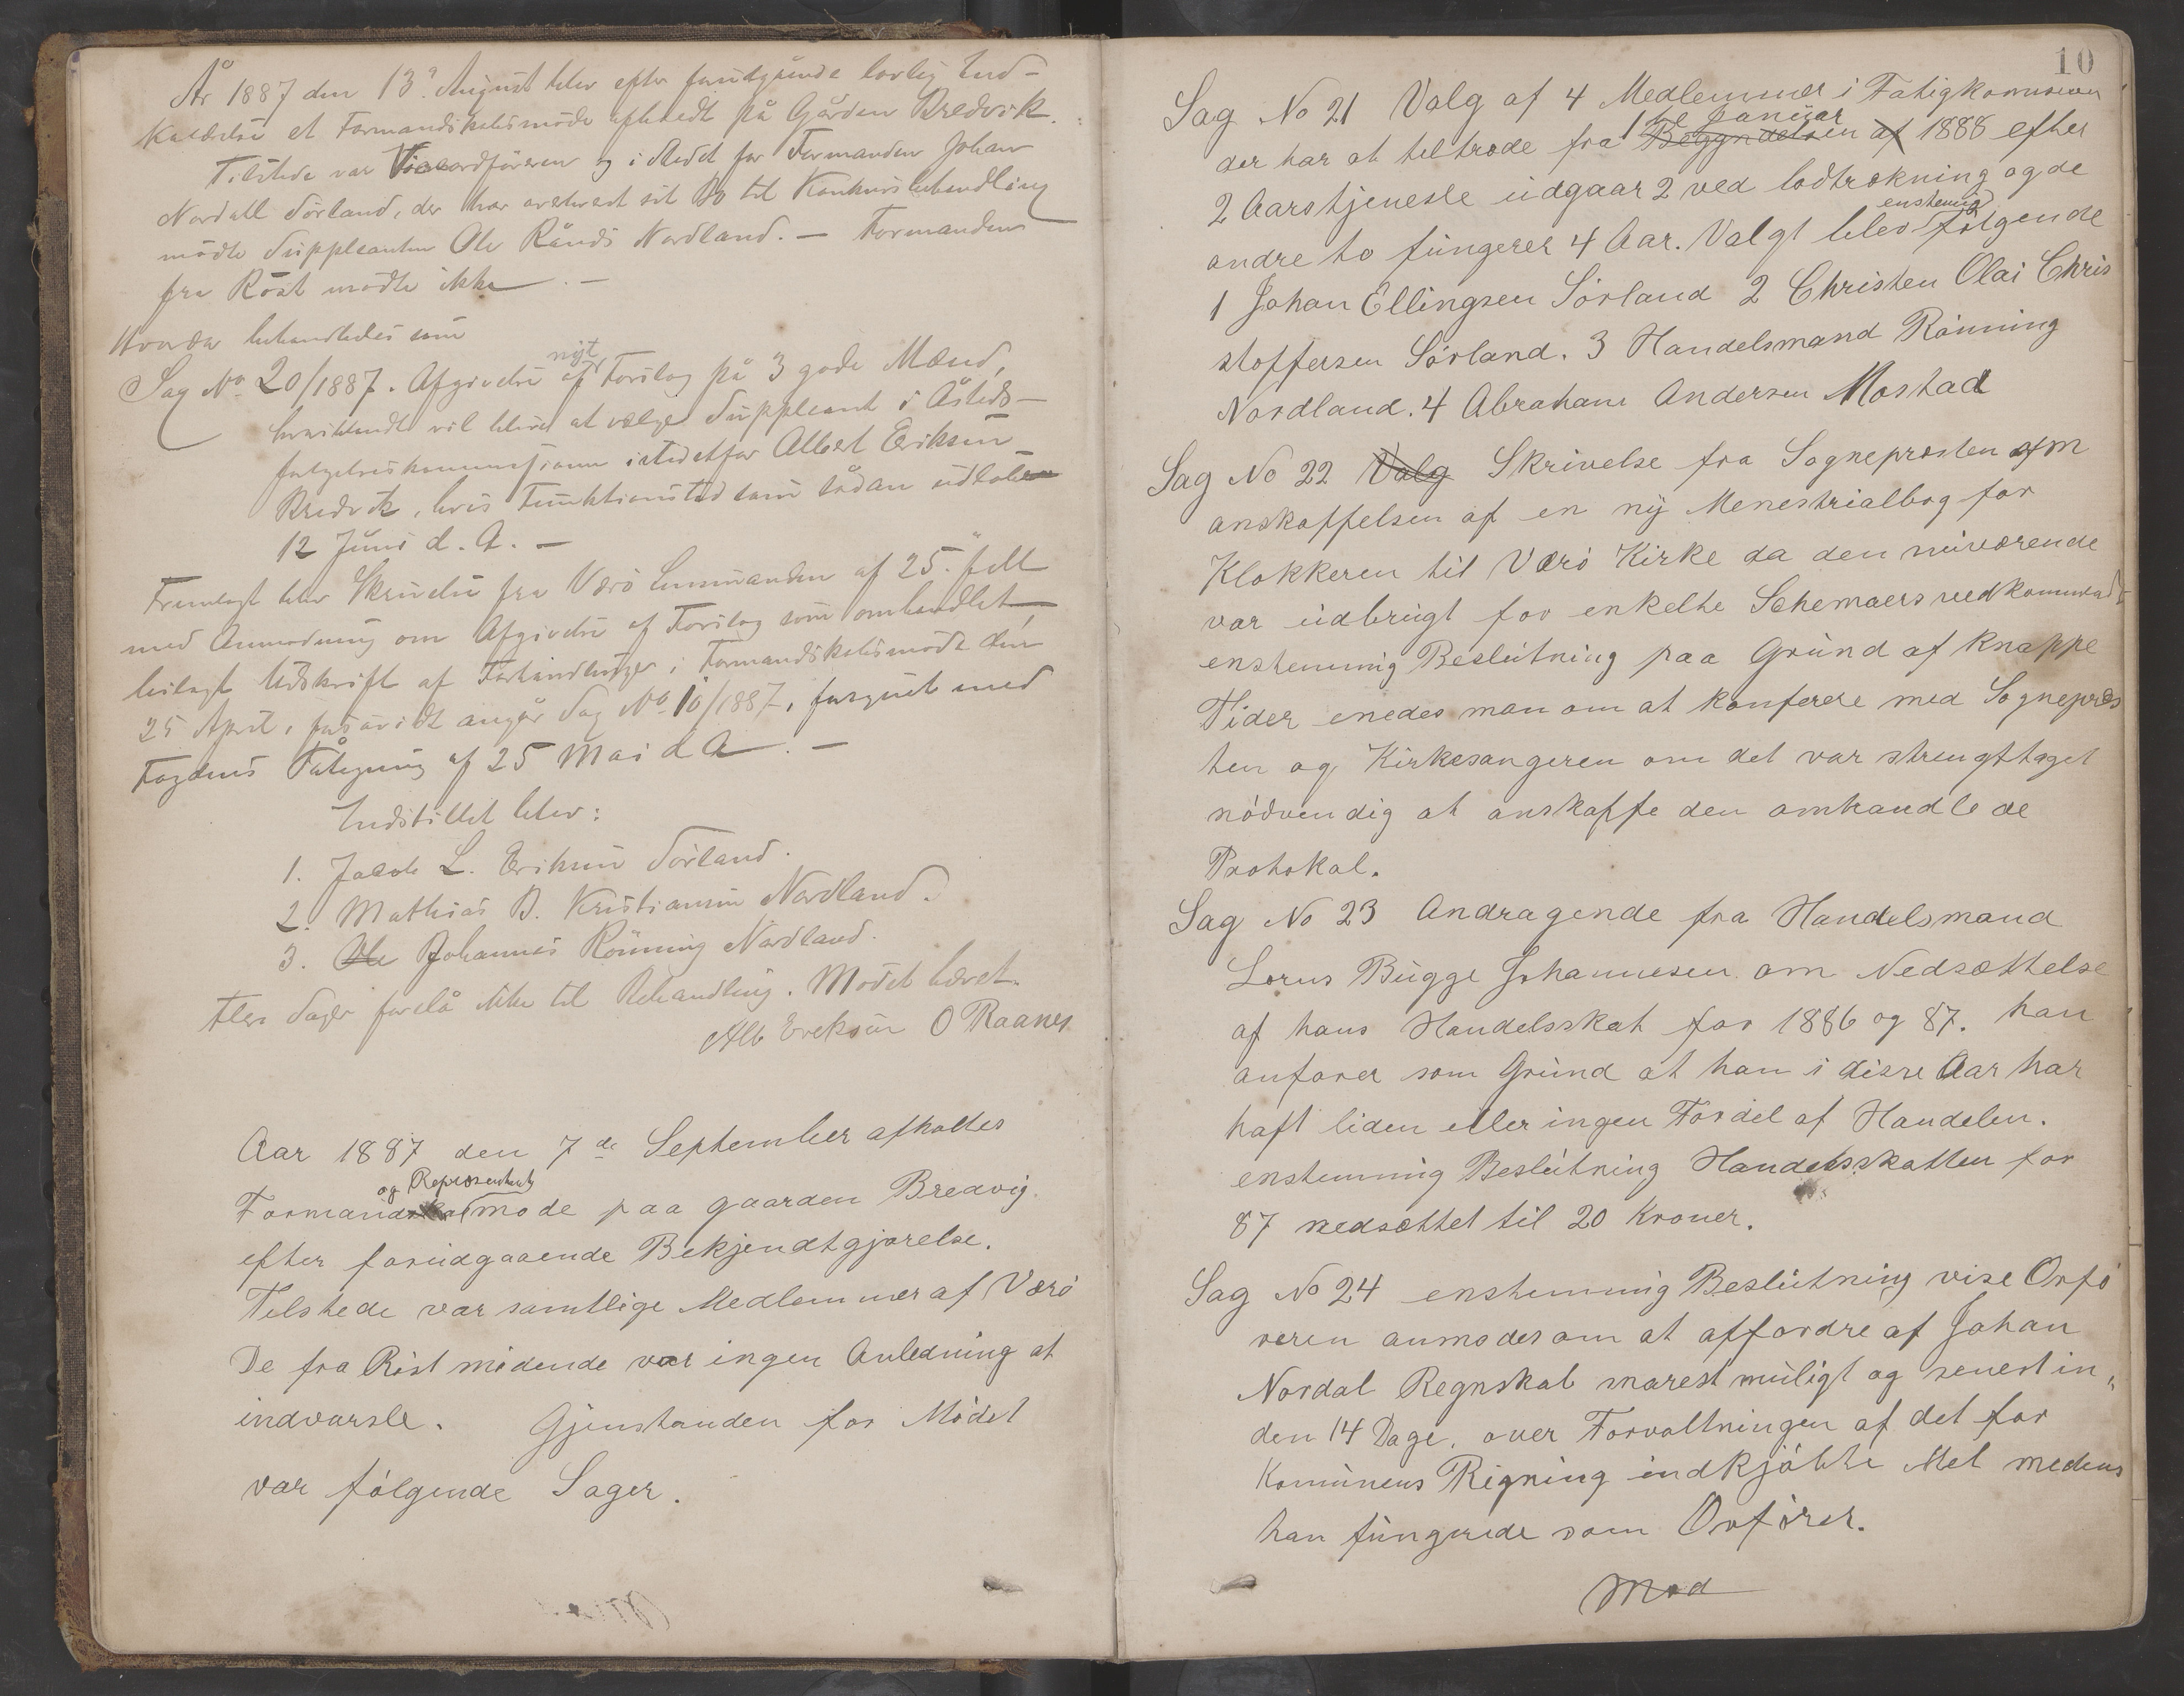 År 1887 den 13. August blev efter forudgående lovlig Ind-
kaldelse et Formandskabsmöde afholdt på Gården Bredvik.
Tilstede var Viceordföreren og i Stedet for Formanden Johan
Nordall Sörland, der har overleveret sit Bo til Konkursbehandling
mödte Suppleanten Ole Rånes Nordland. — Formanden
fra Röst mödte ikke. —
Hvorda behandledes som
Sag No 20/1887. Afgivelse af nyt Forslag på 3 gode Mænd,
hvoriblandt vil blive at vælge Suppleant i Åsteds-
kommissionen istedetfor Albert Eriksen
Bredvik, hvis Funktionstid som sådan udlob
12 Juni d. A. —
Fremlagt blev Skrivelse fra Værö Lensmanden af 25. Juli
med Anmodning om Afgivelse af Forslag som omhandlet
bilagt Udskrift af Forhandlinger i Formandskabsmöde den
25 April, forsåvidt angår Sag No 10/1887, forsynet med
Fogdens Påtegning af 25 Mai d A. —
Indstillet blev:
1. Jacob L. Eriksen Sörland.
2. Mathias B. Kristiansen Nordland.
3. Ole Johannes Rönning Nordland.
Flere Sager forelå ikke til Behandling. Mödet hævet.
Alb Ereksen O Raanes
Aar 1887 den 7de September afholdtes
og Repræsentant
Formandskabmöde paa gaarden Bredvig.
efter forudgaaende Bekjendtgjørelse.
Telstede var samtlige Medlemmer af Værö
De fra Röst mödende var ingen Anledning at
indvarsle. Gjenstanden for Mödet
var fölgende Sager.
10
Sag No 21 Valg af 4 Medlemmer i Fatigkomisionen
1ste Januar
der har at teltræde fra Beggndelsen af 1888 efter
2 Aarstjeneste udgaar 2 ved lodtrækning og de
enstemig
andre to fungerer 4 Aar. Valgt blev fölgende
1 Johan Ellingsen Sörland 2 Christen Olai Chris
stoffersen Sörland. 3 Handelsmand Rönning
Nordland. 4 Abraham Andersen Mostad
Sag No 22 Valg Skrivelse fra Sogneprosten om
anskaffelsen af en ny Menestrialbog for
Klokkeren til Værö Kirke da den nuværende
var udbrugt for enkelte Schemaers vedkommende
enstemmig Beslutning paa Grund af knappe
Tider enedes man om at konferere med Sognepræs
ten og Kirkesangeren om det var strengttaget
nödvendig at anskaffe den omhandlede
Protokol.
Sag No 23 Andragende fra Handelsmand
Lorns Bugge Johannesen om Nedsættelse
af hans Handelsskat for 1886 og 87. han
anforer som Grund at han i disse Aar har
haft liden eller ingen Fordel af Handelen.
enstemmig Beslutning Handelsskatten for
87 nedsættet til 20 Kroner.
Sag No 24 enstemmig Beslutning vise Orfö
reren anmodes om at affordre af Johan
Nordal Regnskab snarest muligt og senest in„
den 14 Dage, over Forvaltningen af det for
Komunens Rigning indkjöbte Mel medens
han fungerede som Orförer.
Mod